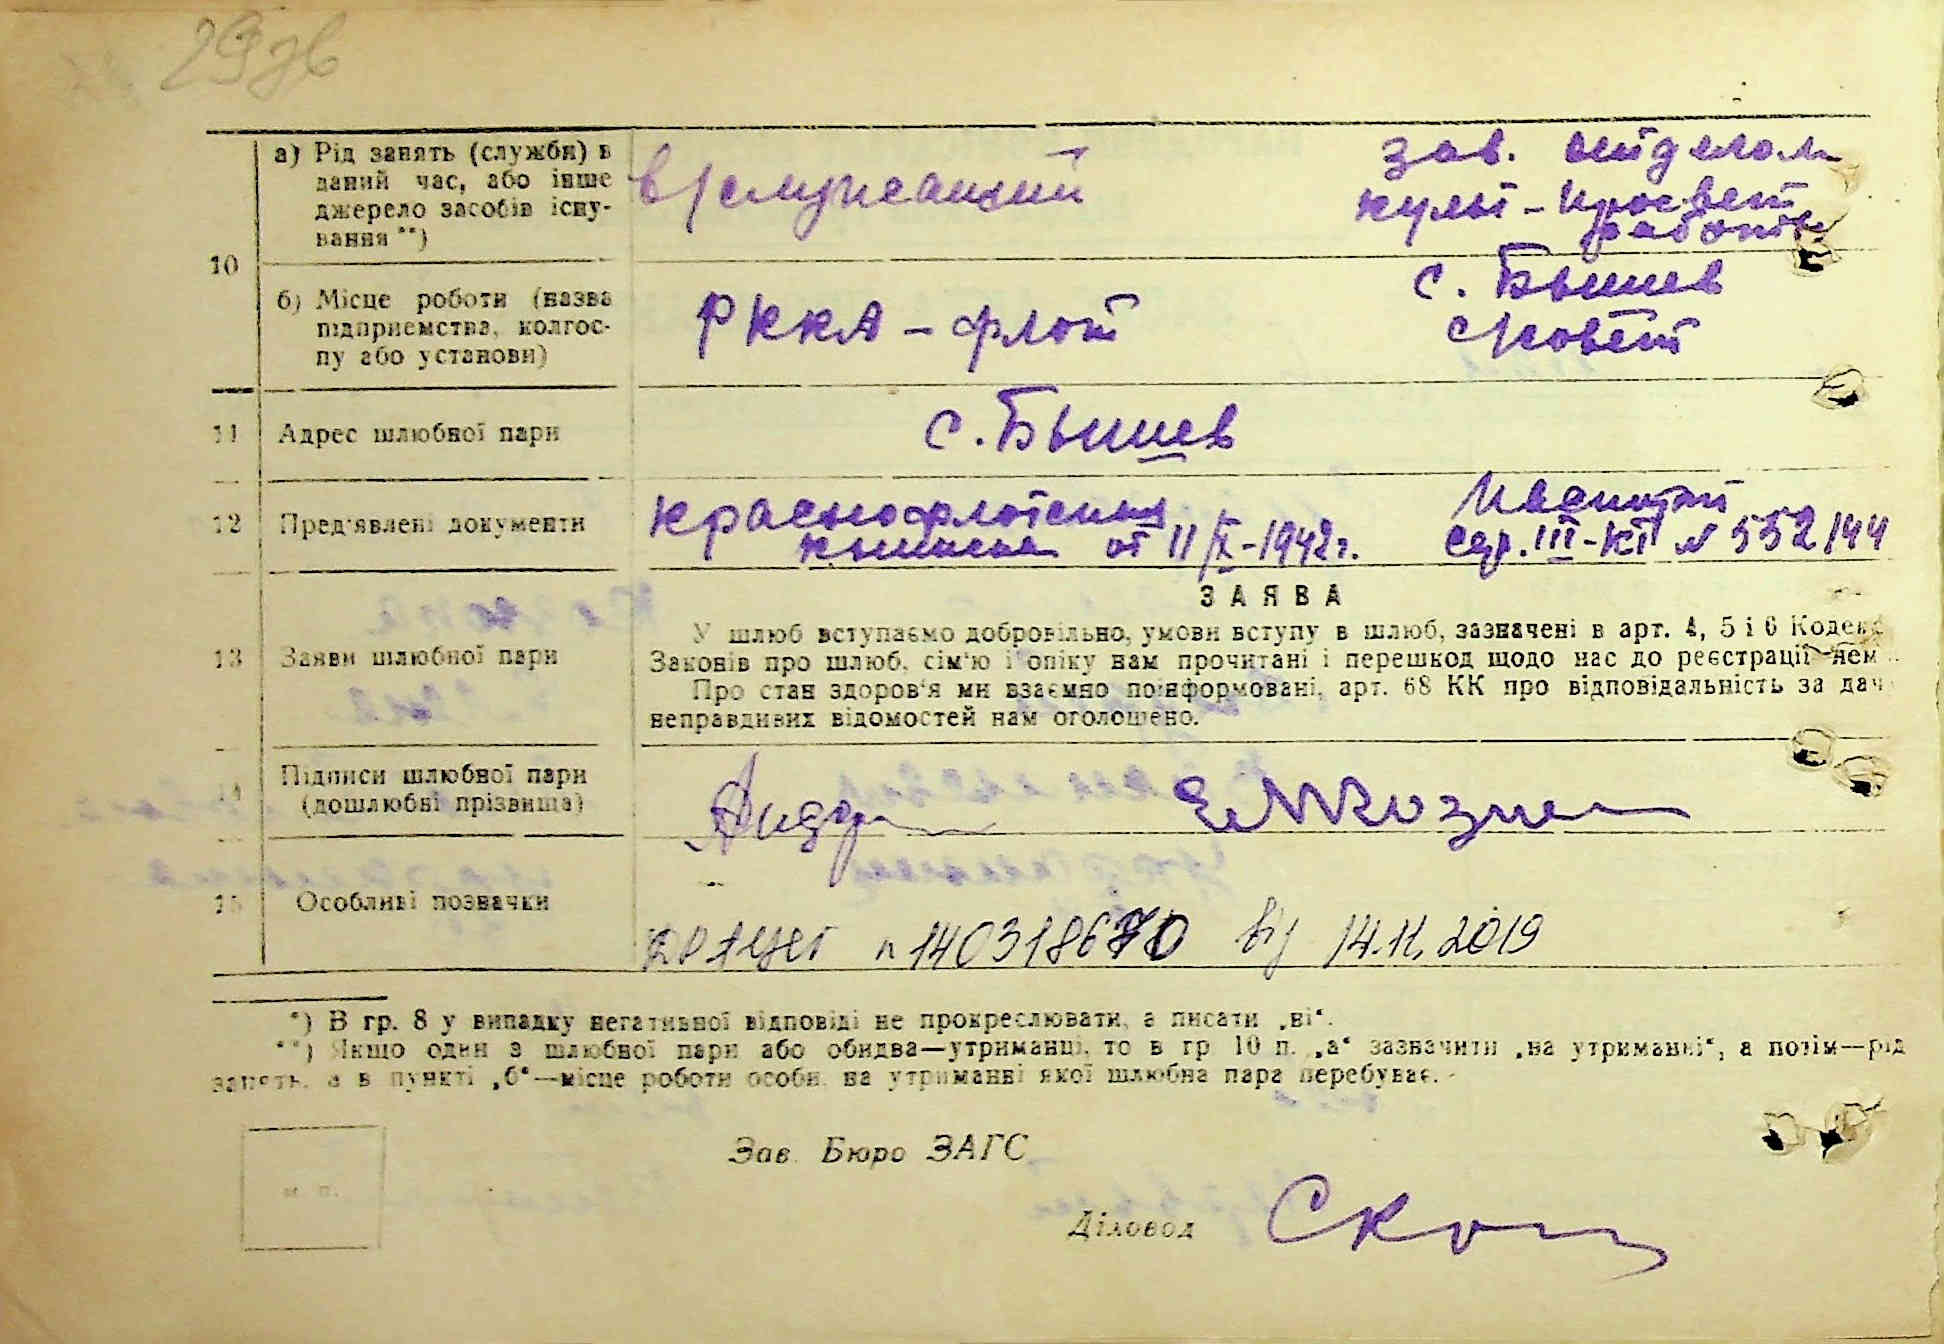 297в
10
а) Рід занять (служби) в
даний час, або інше
джерело засобів існу-
вання **)
в/служащий
зав. отделом
культ-просвет
работы
б) Місце роботи (назва
підприємства, колгос-
пу або установи)
РККА - флот
с. Бышев
с/совет
11
Адрес шлюбної пари
с. Бышев
12
Пред'явлені документи
Краснофлотская
книжка от 11/X-1942 г.
Паспорт
сер. III-КП № 552144
13
Заяви шлюбної пари
ЗАЯВА
У шлюб вступаємо добровільно, умови вступу в шлюб, зазначені в арт. 4, 5 і 6 Кодекс
Законів про шлюб, сім'ю і опіку нам прочитані і перешкод щодо нас до реєстрації нем
Про стан здоров'я ми взаємно поінформовані, арт. 68 КК про відповідальність за дач
неправдивих відомостей нам оголошено.
Підписи шлюбної пари
(дошлюбні прізвища)
15
Особливі позначки
від 14.11.2019
*) В гр. 8 у випадку негативної відповіді не прокреслювати, а писати „ні“.
**) Якщо один з шлюбної пари або обидва—утриманці, то в гр 10 п. „а“ зазначити „на утриманні“, а потім—рід
занять, а в пункті „б“—місце роботи особи, на утриманні якої шлюбна пара перебуває.
Зав. Бюро ЗАГС
м. п.
Діловод